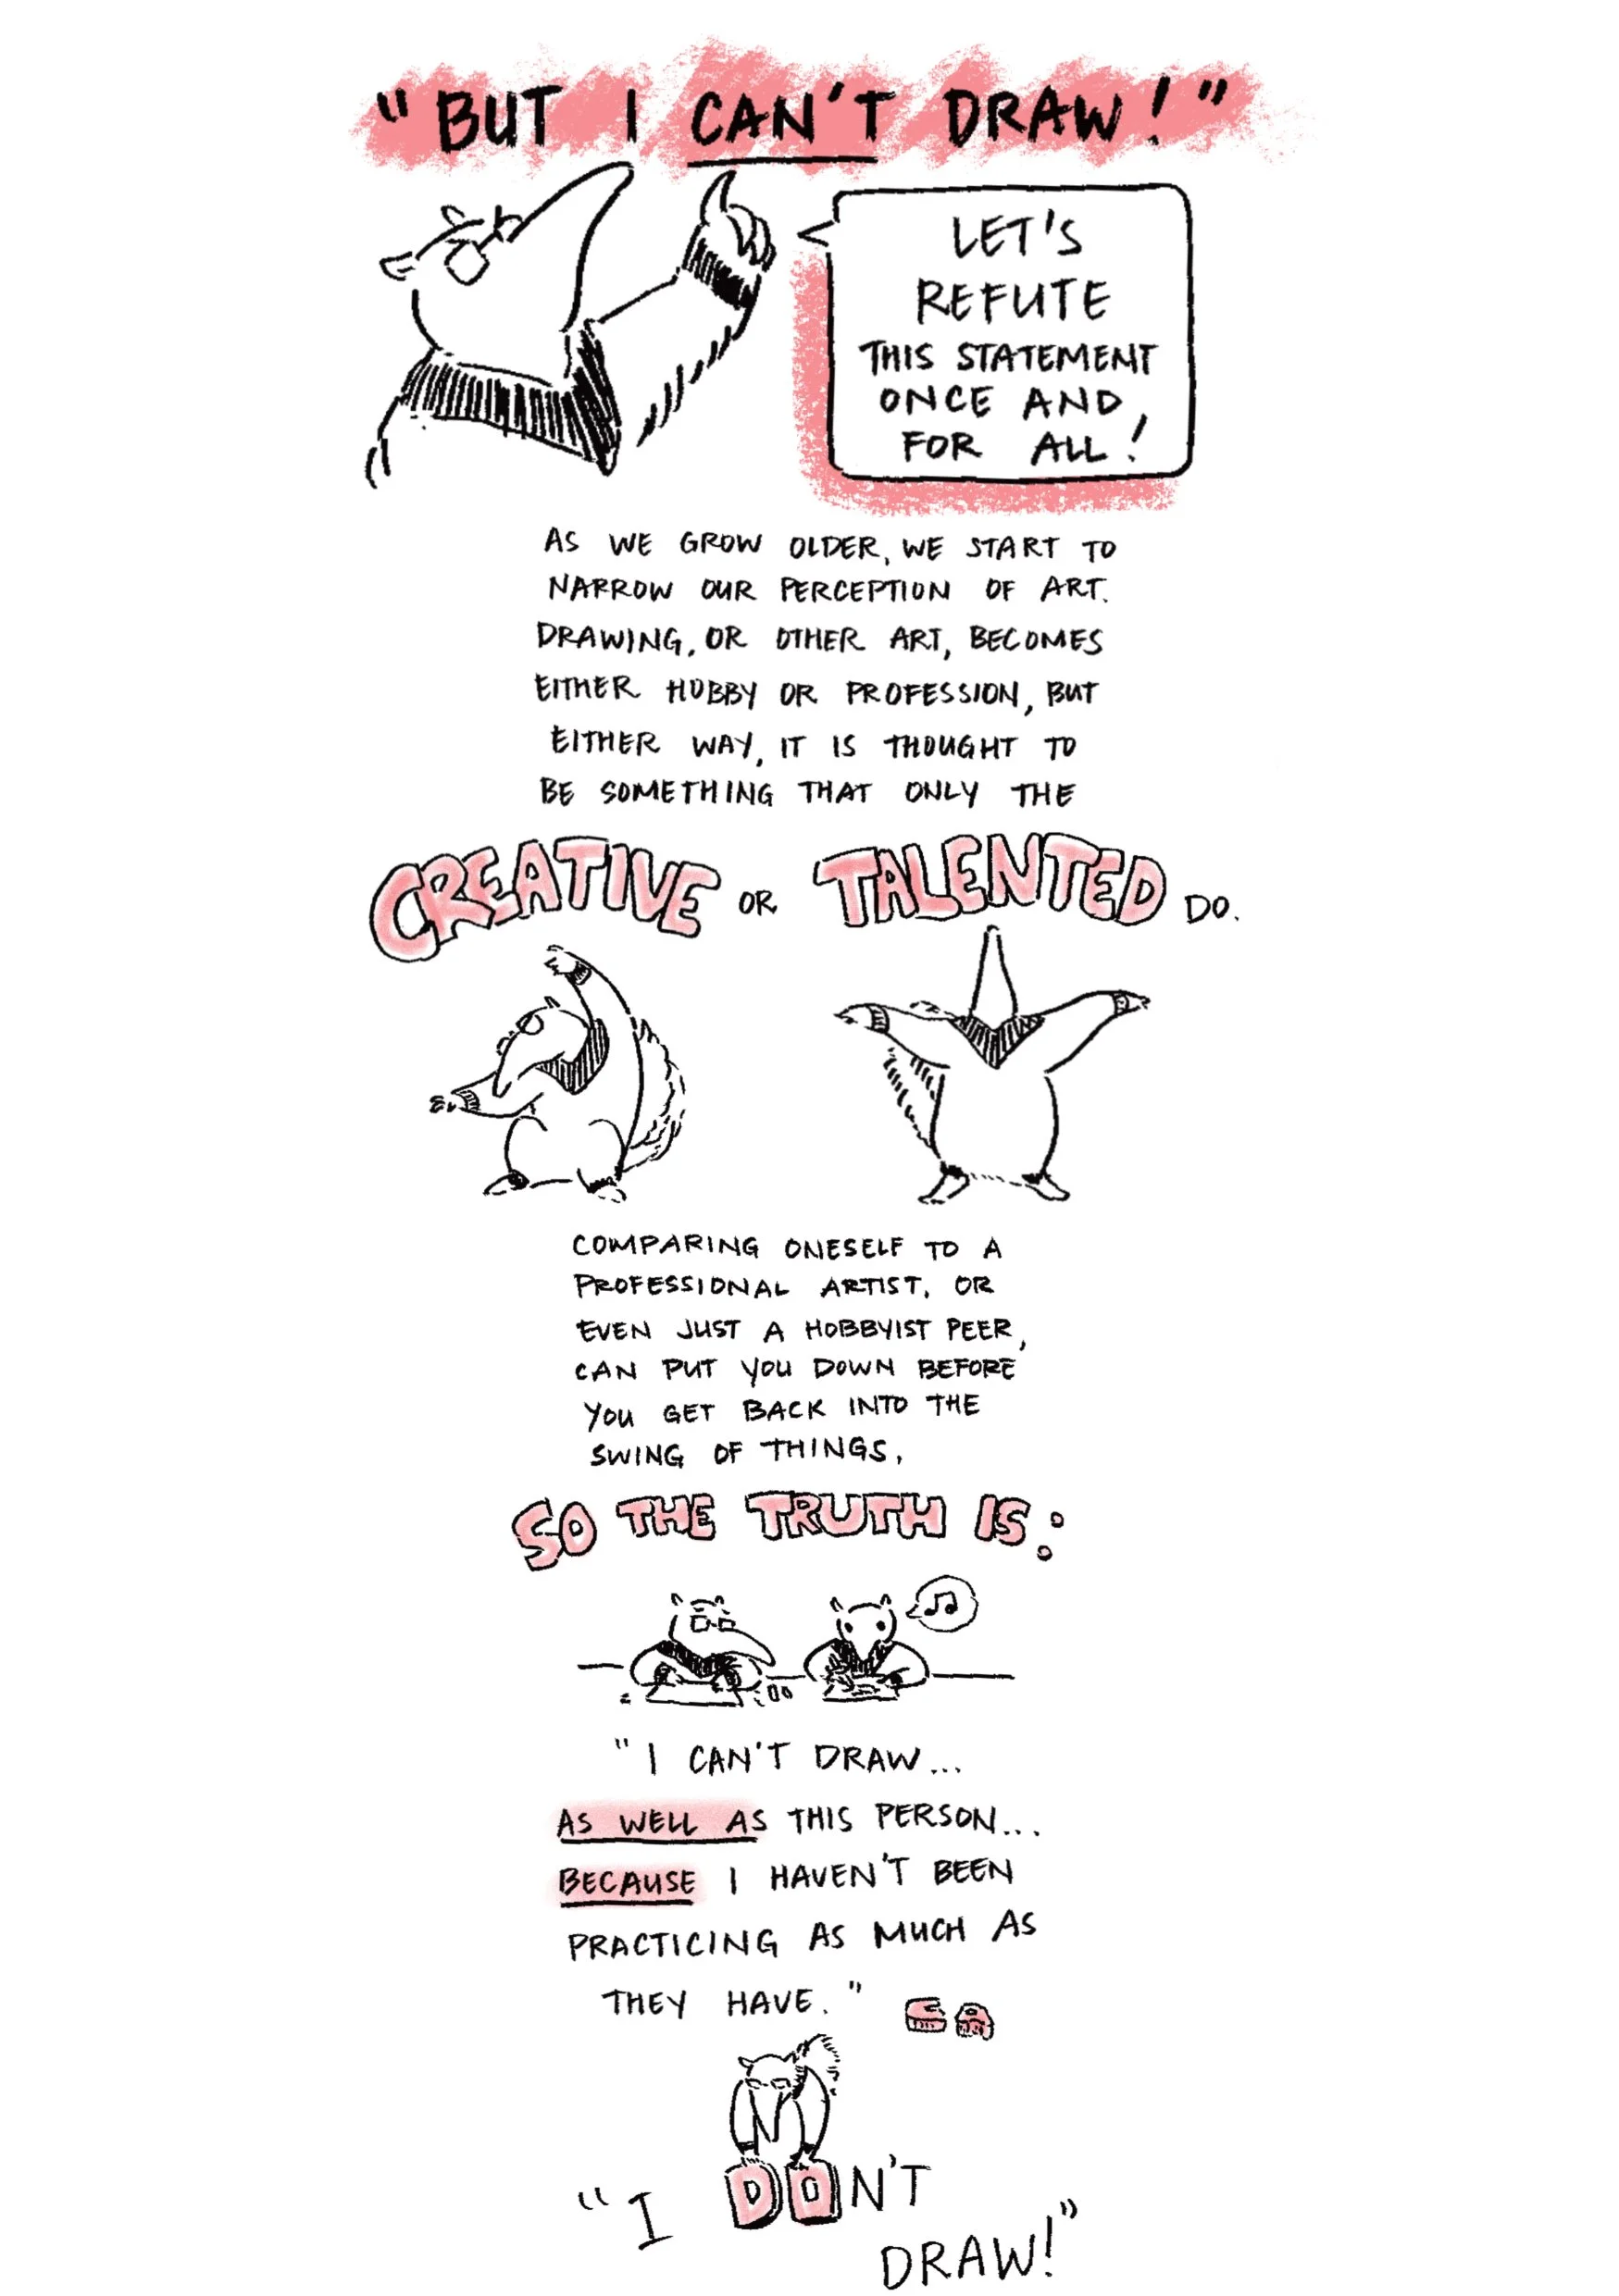 "BUT I CAN'T DRAW!"
LET'S
REFUTE
THIS STATEMENT
ONCE AND
FOR ALL!
AS WE GROW OLDER, WE START TO
NARROW OUR PERCEPTION OF ART.
DRAWING, OR OTHER ART, BECOMES
EITHER HOBBY OR PROFESSION, BUT
EITHER WAY, IT IS THOUGHT TO
BE SOMETHING THAT ONLY THE
CREATIVE OR TALENTED DO.
COMPARING ONESELF TO A
PROFESSIONAL ARTIST, OR
EVEN JUST A HOBBYIST PEER,
CAN PUT YOU DOWN BEFORE
YOU GET BACK INTO THE
SWING OF THINGS.
SO THE TRUTH IS:
"I CAN'T DRAW...
AS WELL AS THIS PERSON...
BECAUSE I HAVEN'T BEEN
PRACTICING AS MUCH AS
THEY HAVE."
CA
"I DON'T
DRAW!"